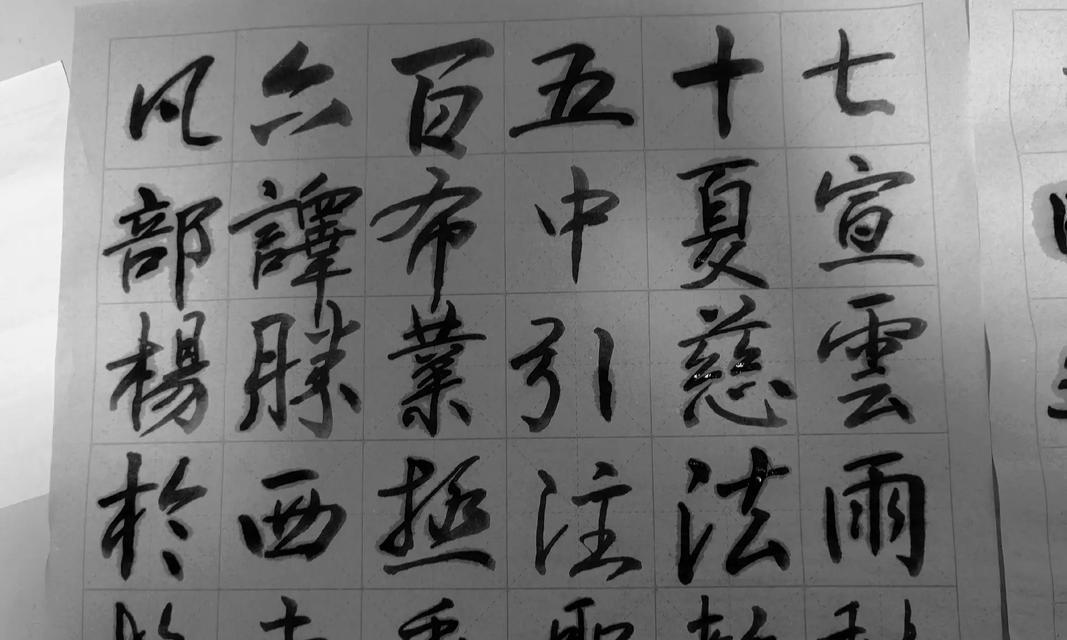 凡六百五十七
部譯布中夏宣
楊勝業引慈雲
於西極注法雨